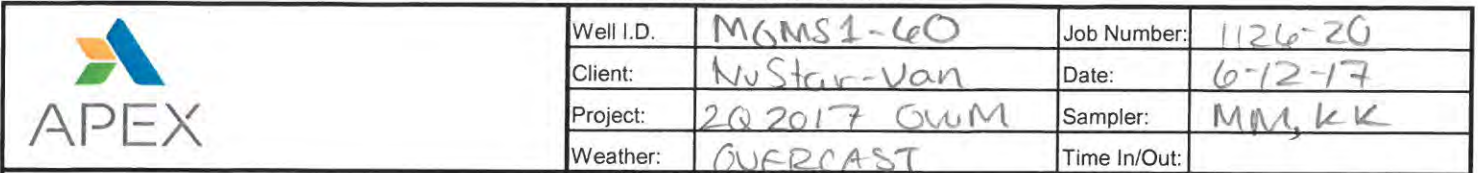 APEX
Well I.D. MGMS1-60 Job Number: 1126-20
Client: NuStar-Van Date: 6-12-17
Project: 2Q 2017 GWM Sampler: MM, KK
Weather: OVERCAST Time In/Out: